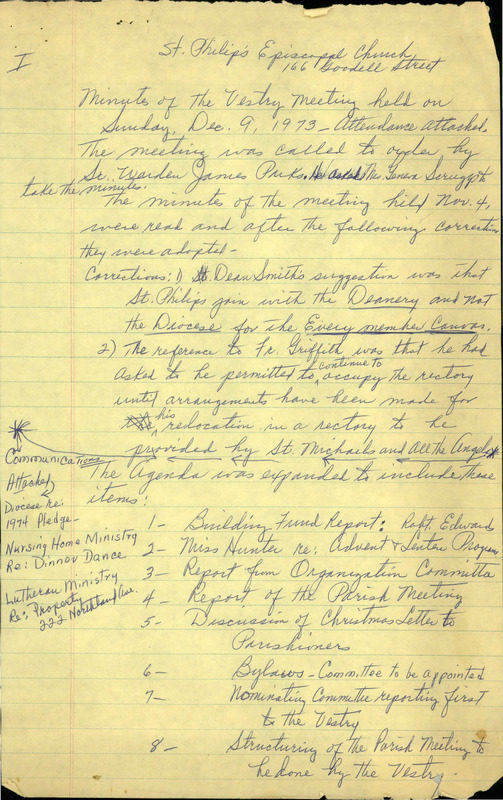 I
St. Philip's Episcopal Church
166 Goodell Street
Minutes of the Vestry Meeting held on
Sunday, Dec. 9, 1973 – Attendance attached.
The meeting was called to order by
Sr. Warden James Parks. He asked Mrs. Geneva Scruggs to
take the minutes.
The minutes of the meeting held Nov. 4,
were read and after the following corrections
they were adopted –
Corrections: 1) Dean Smith's suggestion was that
St. Philips join with the Deanery and not
the Diocese for the Every member Canvas.
2) The reference to Fr. Griffith was that he had
asked to be permitted to continue to occupy the rectory
until arrangements have been made for
his relocation in a rectory to be
provided by St. Michaels and All the Angels*
The Agenda was expanded to include these
items:
1 – Building Fund Report: Robt. Edward
2 – Miss Hunter re: Advent & Lenten Program
3 – Report from Organization Committee
4 – Report of the Parish Meeting
5 – Discussion of Christmas Letter to
Parishioners
6 – Bylaws – Committee to be appointed
7 – Nominating Committee reporting first
to the Vestry
8 – Structuring of the Parish Meeting to
be done by the Vestry
*
Communications
Attached
Diocese re:
1974 Pledge –
Nursing Home Ministry
Re: Dinner Dance
Lutheran Ministry
Re: Property
222 Northland Ave.